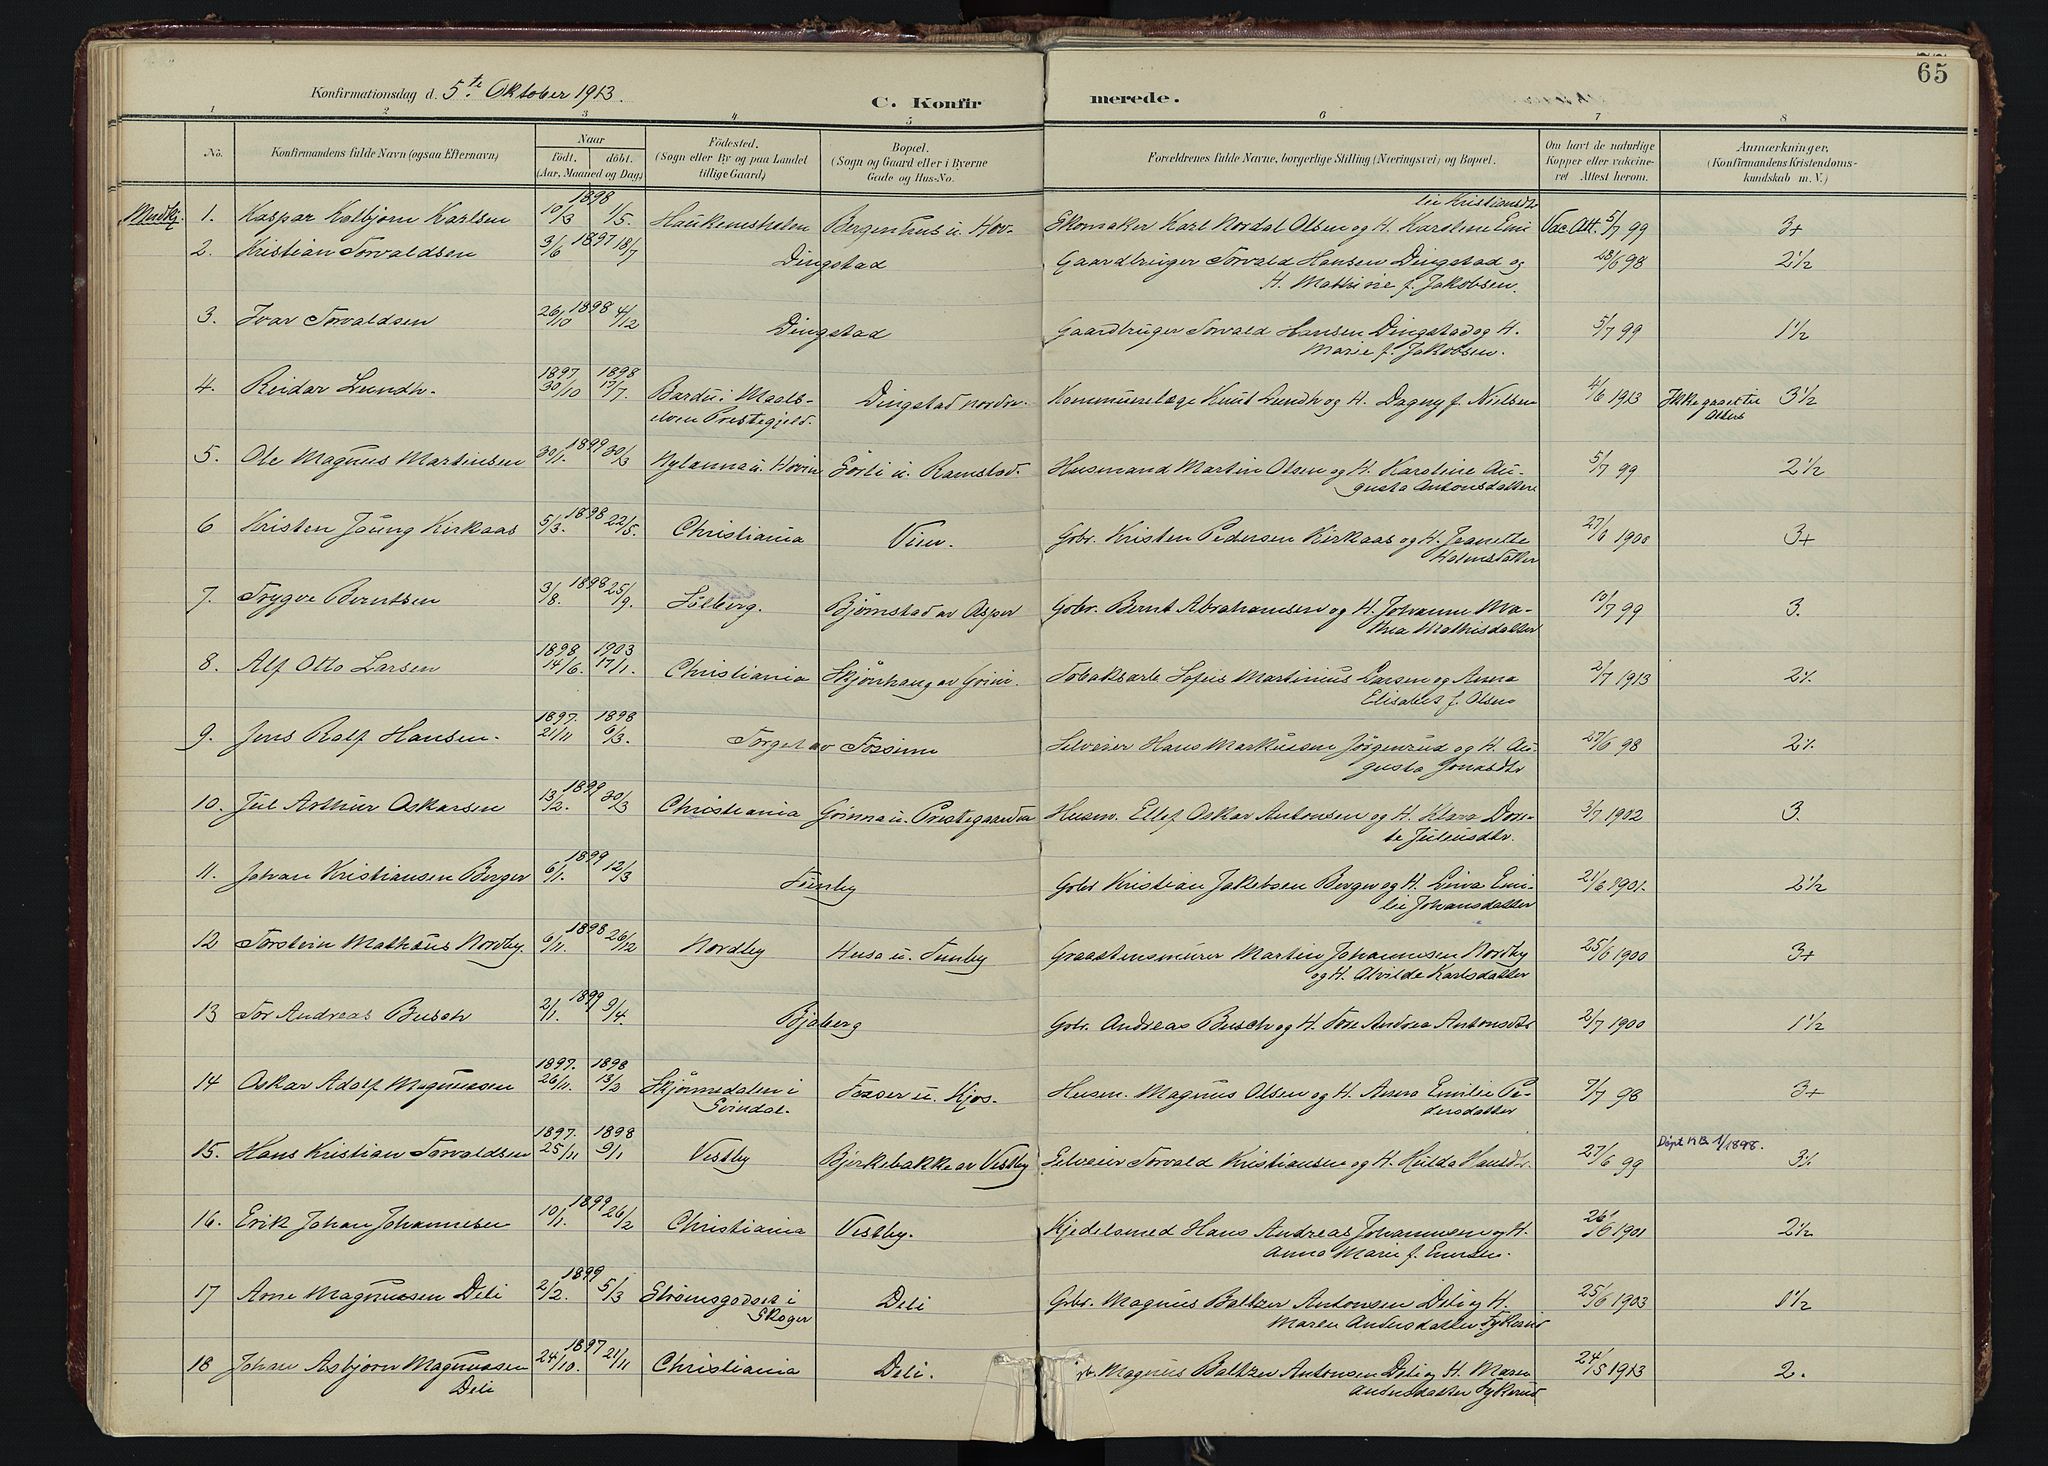 65
Konfirmationsdag d. 5.te Oktober 1913.
C. Konfir merede.
1 2 3 4 5 6 7 8
No.
Konfirmandens fulde Navn (ogsaa Efternavn)
Naar
födt. döbt.
(Aar, Maaned og Dag)
Födested.
(Sogn eller By og paa Landet
tillige Gaard)
Bopæl.
(Sogn og Gaard eller i Byerne
Gade og Hus-No.
Forældrenes fulde Navne, borgerlige Stilling (Næringsvei) og Bopæl.
Om havt de naturlige
Kopper eller vakcine-
ret Attest herom.
Anmærkninger,
(Konfirmandens Kristendoms-
kundskab m. V.)
1898 lie Kristiansdtr
1. Kaspar Kolbjörn Karlsen 10/3 1/5. Haukeneshelen Bergenhus u. Hov- Skomaker Karl Nordal Olsen og H. Karoline Emi Vac.Att. 5/7 99 3+
2. Kristian Torvaldsen 3/6 1897 18/7 Dingstad Gaardbruger Torvald Hansen Dingstad og 28/6 98 2½
H. Mathine f. Jakobsen.
3. Ivar Torvaldsen 26/10 1898 4/12 Dingstad Gaardbruger Torvald Hansen Dingstad og H. 5/7 99 1½
Marie f. Jakobsen.
1897. 1898
4. Reidar Lundh. 30/10 17/7. Bardu i Maals- Dingstad nordre. Kommunelæge Knut Lundh og H. Dagny f. Nielsen 4/6 1913 Ikke gaaet til 3½
elven Prestegjeld. Alters
5. Ole Magnus Martinsen 30/1. 1899 30/3 Nylanna u. Hovin Sörli u. Ramstad. Husmand Martin Olsen og H. Karoline Au- 5/7 99 2½
gusta Antonsdatter
6 Kristen Joung Kirkaas 5/3. 1898 22/5. Christiania Veien. Gbr. Kristen Pedersen Kirkaas og H. Jeanette 27/6 1900 3+
Holmsdatter
7. Trygve Berntsen 3/8. 1898 25/9. Solberg. Björnstad av Asper Gbr. Bernt Abrahamsen og H. Johanne Ma- 10/7 99 3.
thea Mathisdatter
1898 1903
8. Alf Otto Larsen 14/6. 17/1. Christiania Skjönhaug av Grini. Tobaksarb. Martinius Larsen og Anna 2/7 1913 2⁒
Elisabet f. Olsen
1897. 1898
9. Jens Ralf Hansen. 21/11 6/3. Torget av Fossum Selveier Hans Markussen Jörgenrud og H. Au- 27/6 98 2⁒
gusta Jonasdtr
10. Jul Arthur Oskarsen 13/2. 1899 30/3 Christiania Grinna u. Prestegaarden Husm. Ellef Oskar Antonsen og H. Klara Dor- 3/7 1902 3.
te Juliusdtr.
11. Johan Kristiansen Berger 6/1. 1899 12/3 Tenby Gbr Kristian Jakobsen Berger og H. Lina Emi- 21/6 1901. 2½
lie Johansdatter
12 Torstein Mathäus Nordby. 6/11. 1898 26/12 Nordby Husa u. Tenby Graastensmurer Martin Johannesen Nordby 25/6 1900 3+
og H. Alvilde Karlsdatter
13 Tor Andreas Busch 2/1. 1899 9/4. Bjaberg Gbr. Andreas Busch og H. Tore Andrea Antonsdtr 2/7 1900 1½
1897. 1898
14 Oskar Adolf Magnussen 26/11. 13/2 Skjönnedalen i Fosser u. Kjos. Husm. Magnus Olsen og H. Anna Emilie Pe- 7/7 98 3+
Svindal. dersdatter
1897. 1898 Döpt K.B. 1/1898.
15. Hans Kristian Torvaldsen 25/11 9/1 Vestby Bjerkebakke av Vestby Selveier Torvald Kristiansen og H. Hulda Hansdtr. 27/6 99 3⁒
16. Erik Johan Johannesen 10/1. 1899 26/2 Christiania Vestby. Kjedelsmed Hans Andreas Johannesen og H. 26/6 1901 2½
Anna Marie f. Ennsen.
17 Arne Magnussen Deli 2/2. 1899 5/3 Strömsgodset i Deli Gbr. Magnus Baltzer Antonsen Deli og H. 25/6 1903 1½
Skoger Maren Andersdatter Tykerud
18 Johan Asbjörn Magnussen 24/10. 1897 21/11 Christiania Deli. Magnus Baltzer Antonsen Deli og H. Maren 24/5 1913 2.
Deli Andersdatter Tykerud